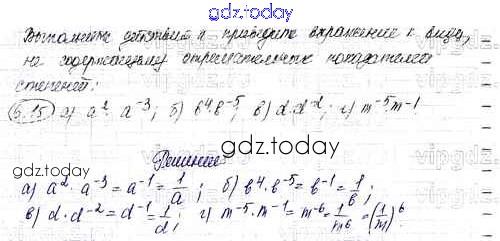 gdz.today
Выполните действия и приведите выражение к виду,
не содержащему отрицательных показателей
степеней:
gdz.today
6.15 а) a² · a⁻³; б) b⁴·b⁻⁵; в) d·d⁻²; г) m⁻⁵·m⁻¹
gdz.today
Решение
gdz.today
а) a² · a⁻³ = a⁻¹ = 1/a; б) b⁴·b⁻⁵ = b⁻¹ = 1/b;
в) d·d⁻² = d⁻¹ = 1/d; г) m⁻⁵·m⁻¹ = m⁻⁶ = 1/m⁶ = (1/m)⁶
gdz.today